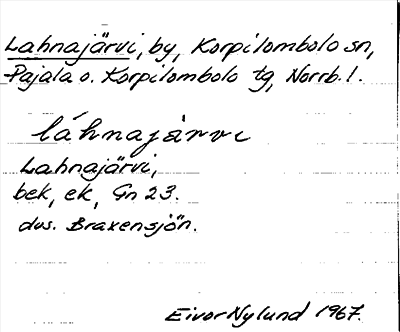 Lahnajärvi, by, Korpilombolo sn,
Pajala o. Korpilombolo tg, Norrb. l.
láhnajàrvi
Lahnajärvi,
bek, ek, Gn 23.
dvs. Braxensjön.
Eivor Nylund 1967.